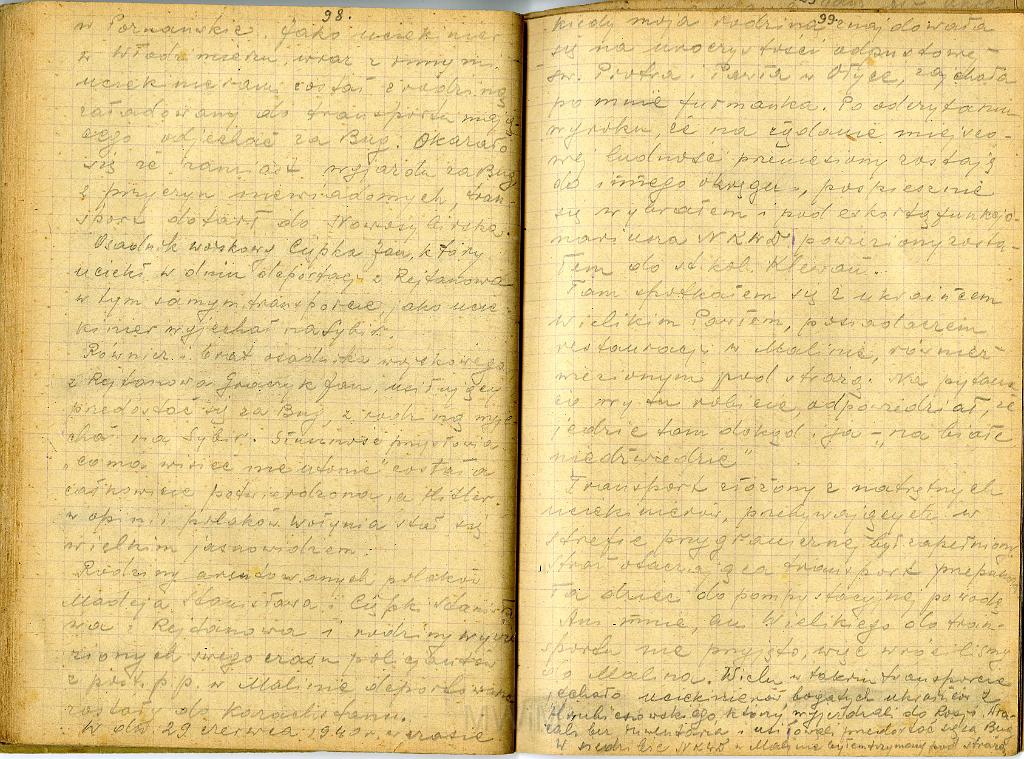 98.
w Poznańskie. Jako uciekinier
w Włodzimierzu, wraz z innymi
uciekinierami został z rodziną
załadowany do transportu mają-
cego odjechać za Bug. Okazało
się że zamiast wyjazdu za Bug
z przyczyn niewiadomych, tran-
sport dotarł do Nowosybirska.
Osadnik wojskowy Cypka Jan, który
uciekł w dniu deportacji z Rejtanowa
w tym samym transporcie, jako ucie-
kinier wyjechał na Sybir.
Również i brat osadnika wojskowego
z Rejtanowa Graczyk Jan, usiłujący
przedostać się za Bug, z rodziną wyje-
chał na Sybir. Słuszność przysłowia
"co ma wisieć nie utonie" została
całkowicie potwierdzona, a Hitler
w opinii polaków Wołynia stał się
wielkim jasnowidzem.
Rodziny aresztowanych polaków
Madeja Stanisława i Cypk Stanisła-
wa z Rejtanowa i rodziny wywie-
zionych swego czasu policjantów
z post. p.p. w Malinie deportowane
zostały do Kazachstanu.
W dniu 29 czerwca 1940 r. w czasie
99.
kiedy moja rodzina znajdowała
się na uroczystości odpustowej
św. Piotra i Pawła w Ołyce, zajechała
po mnie furmanka. Po odczytaniu
wyroku, że na żądanie miejsco-
wej ludności przeniesiony zostaję
do innego okręgu, pospiesznie
się wybrałem i pod eskortą funkcjo-
nariusza NKWD powieziony zosta-
łem do st. kol. Klewań.
Tam spotkałem się z ukraińcem
Wielikim Pawłem, posiadaczem
restauracji w Malinie, również
wiezionym pod strażą. Na pytanie
co wy tu robicie, odpowiedział, że
jedzie tam dokąd i ja - "na białe
niedźwiedzie"
Transport złożony z natrętnych
uciekinierów, przebywających w
strefie przygranicznej był zapełniony
Straż otaczająca transport przepuszcza-
ła dzieci do pompy stacyjnej po wodę
Ani mnie, ani Wielikiego do tran-
sportu nie przyjęto, więc wróciliśmy
do Malina. Wielu w takim transporcie
jechało uciekinierów bogatych ukraińców z
Hrubieszowskiego, którzy wyjeżdżali do Rosji,
bez inwentarza i usiłowali przedostać się za Bug
W siedzibie NKWD w Malinie byłem trzymany pod strażą
MWiM